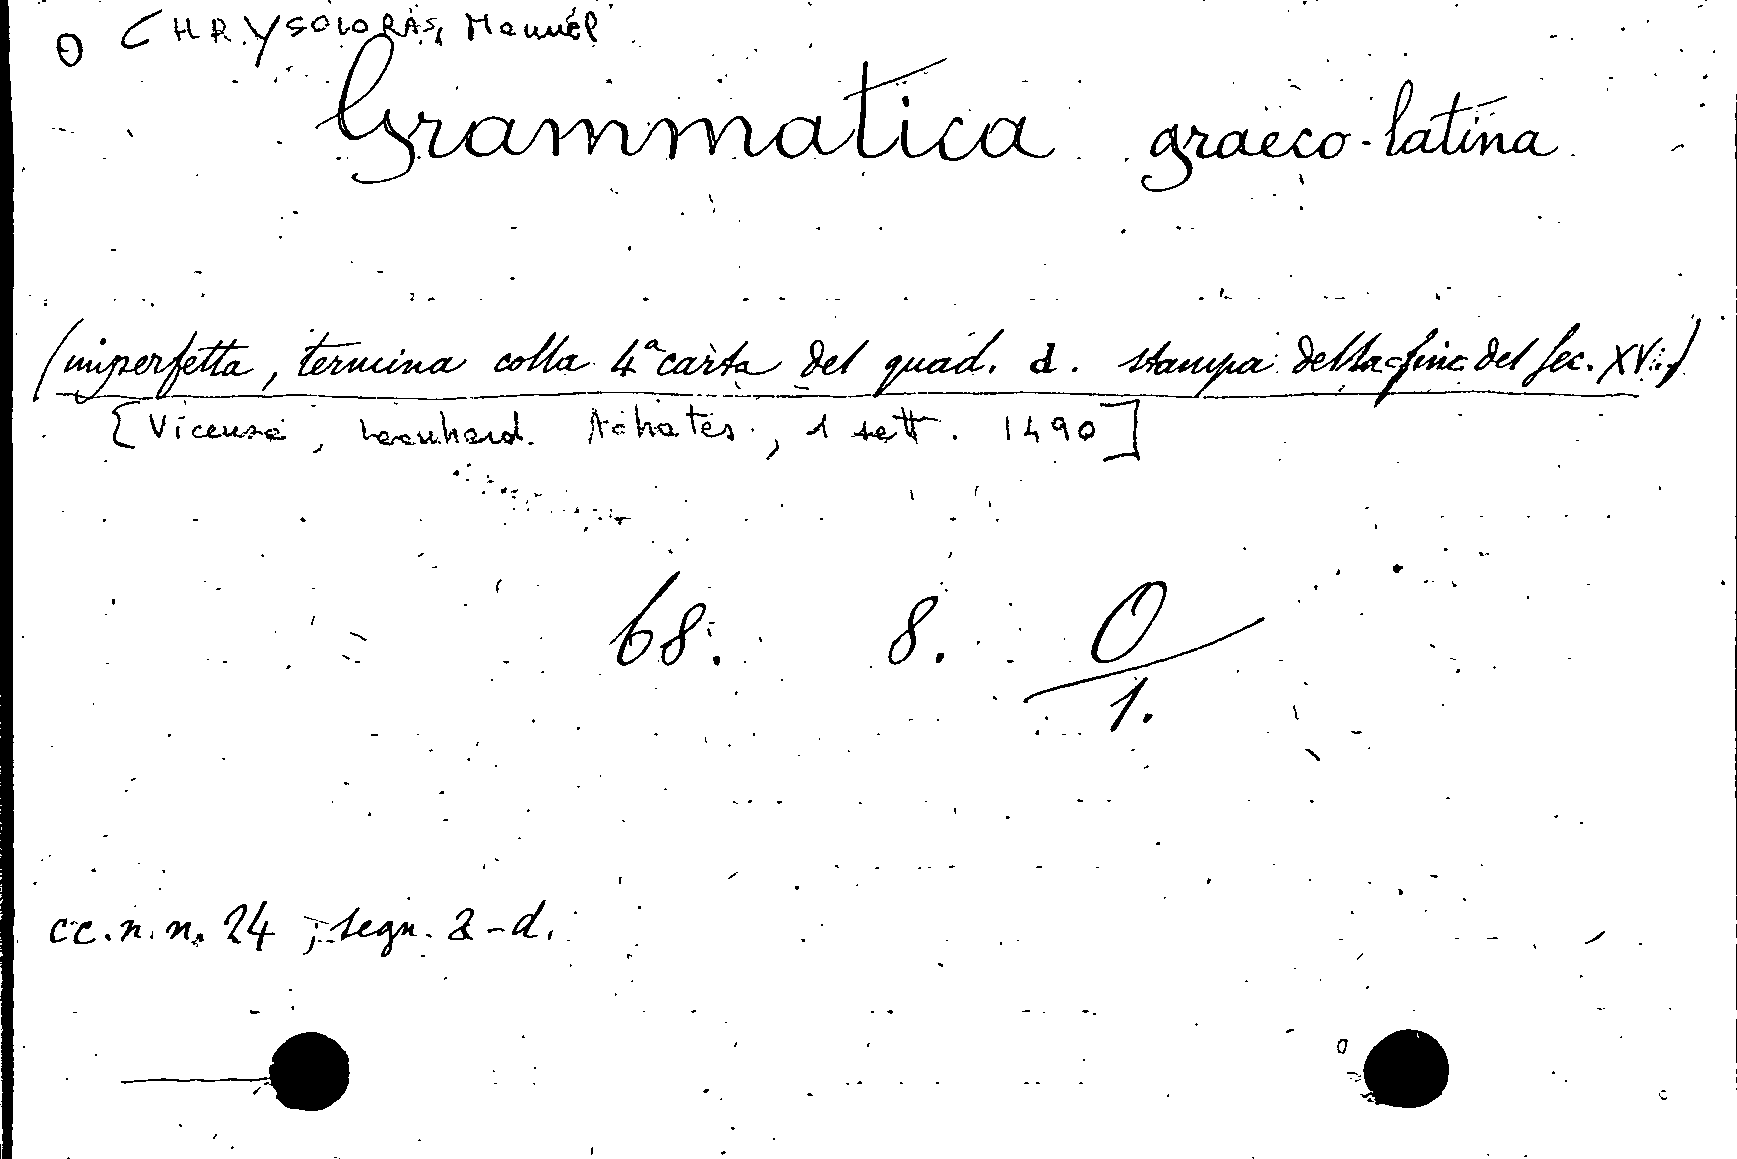 O CHRYSOLORAS, Manuel
Grammatica graeco-latina
(imperfetta, termina colla 4ª carta del quad. d. stampa della fine del sec. XV.)
[Vicenza, Leonhard. Achates, 1 sett. 1490]
68. 8. O
1.
cc. n. n. 24 ; segn. a-d.